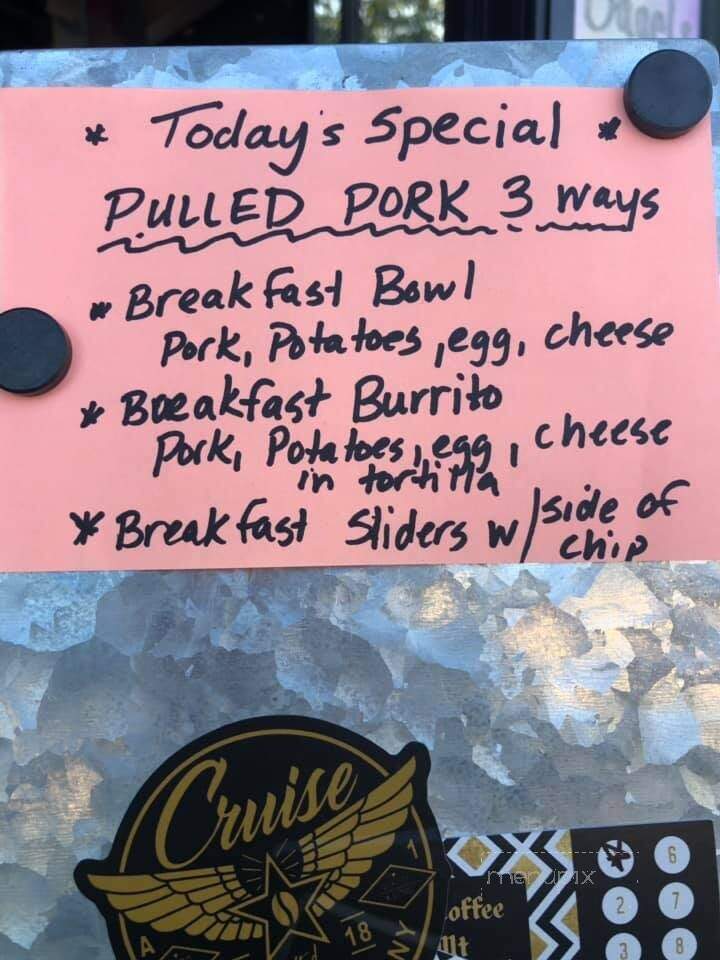 * Today's Special *
PULLED PORK 3 ways
* Breakfast Bowl
Pork, Potatoes, egg, cheese
* Breakfast Burrito
Pork, Potatoes, egg, cheese
in tortilla
* Breakfast Sliders w/ side of
chip
Cruise
18
1
A
NY
offee
menupix
6
2
7
3
8